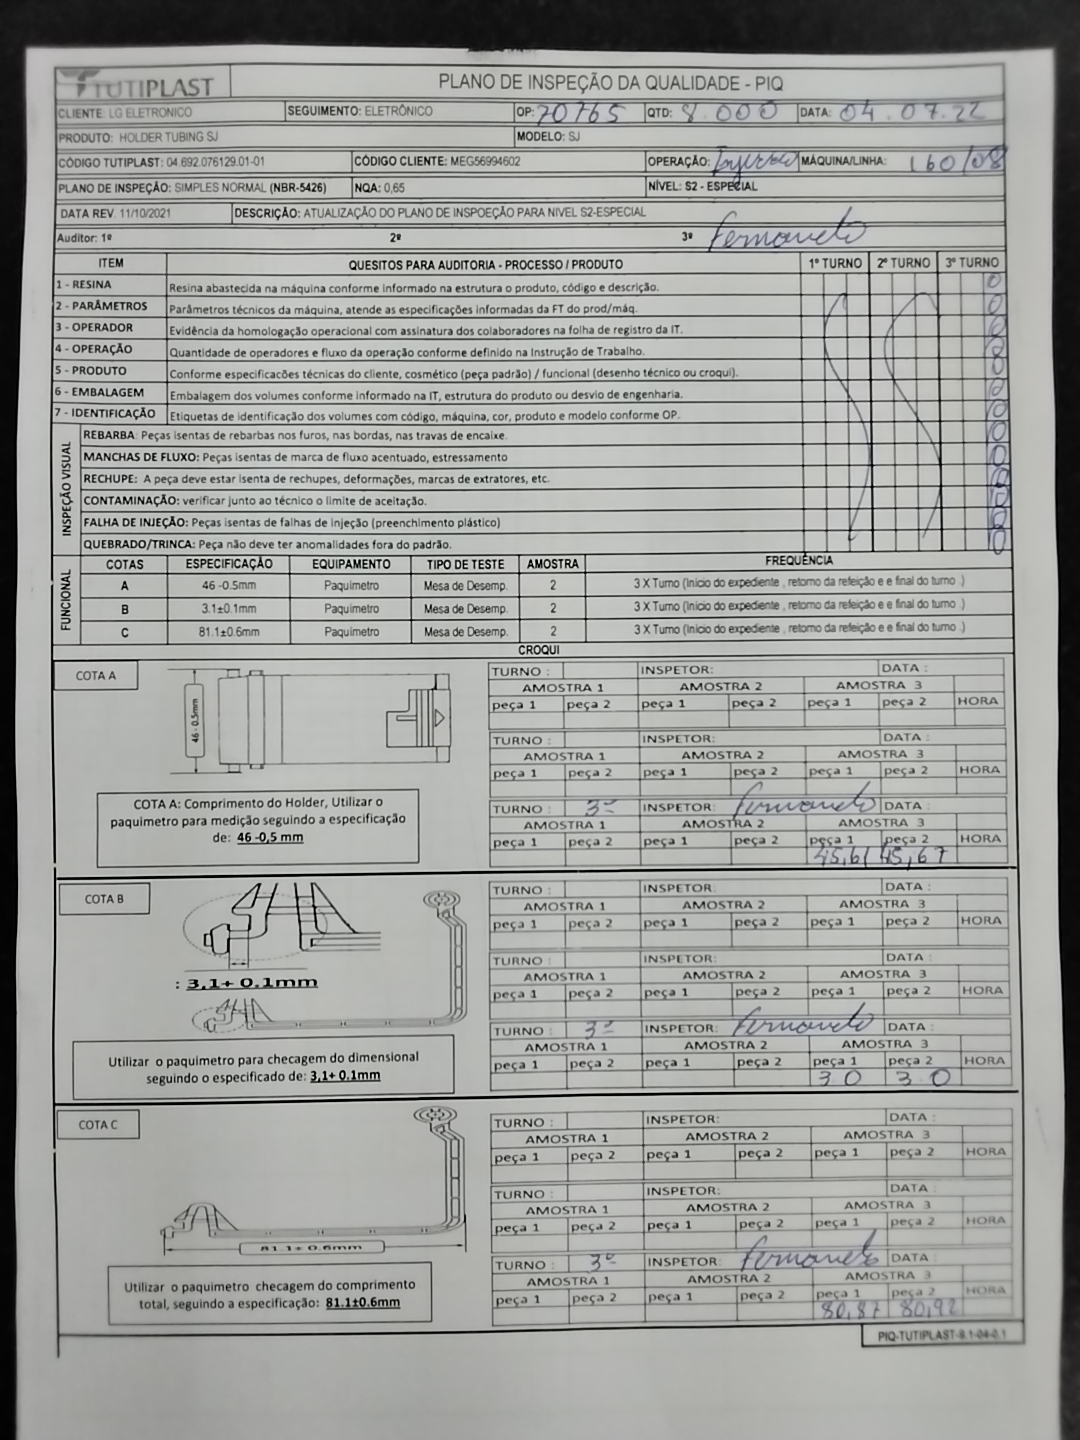 TUTIPLAST PLANO DE INSPEÇÃO DA QUALIDADE - PIQ
CLIENTE: LG ELETRONICO SEGUIMENTO: ELETRÔNICO OP: 70765 QTD: 8.000 DATA: 04.07.22
PRODUTO: HOLDER TUBING SJ MODELO: SJ
CÓDIGO TUTIPLAST: 04.692.076129.01-01 CÓDIGO CLIENTE: MEG56994602 OPERAÇÃO: MÁQUINA/LINHA: 160/08
PLANO DE INSPEÇÃO: SIMPLES NORMAL (NBR-5426) NQA: 0,65 NÍVEL: S2 - ESPECIAL
DATA REV. 11/10/2021 DESCRIÇÃO: ATUALIZAÇÃO DO PLANO DE INSPOEÇÃO PARA NIVEL S2-ESPECIAL
Auditor: 1º 2º 3º Fernando
ITEM QUESITOS PARA AUDITORIA - PROCESSO / PRODUTO 1º TURNO 2º TURNO 3º TURNO
1 - RESINA Resina abastecida na máquina conforme informado na estrutura o produto, código e descrição.
2 - PARÂMETROS Parâmetros técnicos da máquina, atende as especificações informadas da FT do prod/máq.
3 - OPERADOR Evidência da homologação operacional com assinatura dos colaboradores na folha de registro da IT.
4 - OPERAÇÃO Quantidade de operadores e fluxo da operação conforme definido na Instrução de Trabalho.
5 - PRODUTO Conforme especificacões técnicas do cliente, cosmético (peça padrão) / funcional (desenho técnico ou croqui).
6 - EMBALAGEM Embalagem dos volumes conforme informado na IT, estrutura do produto ou desvio de engenharia.
7 - IDENTIFICAÇÃO Etiquetas de identificação dos volumes com código, máquina, cor, produto e modelo conforme OP.
INSPEÇÃO VISUAL
REBARBA: Peças isentas de rebarbas nos furos, nas bordas, nas travas de encaixe.
MANCHAS DE FLUXO: Peças isentas de marca de fluxo acentuado, estressamento
RECHUPE: A peça deve estar isenta de rechupes, deformações, marcas de extratores, etc.
CONTAMINAÇÃO: verificar junto ao técnico o limite de aceitação.
FALHA DE INJEÇÃO: Peças isentas de falhas de injeção (preenchimento plástico)
QUEBRADO/TRINCA: Peça não deve ter anomalidades fora do padrão.
FUNCIONAL
COTAS ESPECIFICAÇÃO EQUIPAMENTO TIPO DE TESTE AMOSTRA FREQUÊNCIA
A 46 -0.5mm Paquímetro Mesa de Desemp. 2 3 X Turno (Início do expediente , retorno da refeição e e final do turno .)
B 3.1±0.1mm Paquímetro Mesa de Desemp. 2 3 X Turno (Início do expediente , retorno da refeição e e final do turno .)
C 81.1±0.6mm Paquímetro Mesa de Desemp. 2 3 X Turno (Início do expediente , retorno da refeição e e final do turno .)
CROQUI
COTA A
46 - 0.5mm
COTA A: Comprimento do Holder, Utilizar o
paquimetro para medição seguindo a especificação
de: 46 -0,5 mm
TURNO : INSPETOR: DATA :
AMOSTRA 1 AMOSTRA 2 AMOSTRA 3
peça 1 peça 2 peça 1 peça 2 peça 1 peça 2 HORA
TURNO : INSPETOR: DATA :
AMOSTRA 1 AMOSTRA 2 AMOSTRA 3
peça 1 peça 2 peça 1 peça 2 peça 1 peça 2 HORA
TURNO : 3º INSPETOR: Fernando DATA :
AMOSTRA 1 AMOSTRA 2 AMOSTRA 3
peça 1 peça 2 peça 1 peça 2 peça 1 peça 2 HORA
45,61 45,67
COTA B
: 3,1+ 0.1mm
Utilizar o paquimetro para checagem do dimensional
seguindo o especificado de: 3,1+ 0.1mm
TURNO : INSPETOR: DATA :
AMOSTRA 1 AMOSTRA 2 AMOSTRA 3
peça 1 peça 2 peça 1 peça 2 peça 1 peça 2 HORA
TURNO : INSPETOR: DATA :
AMOSTRA 1 AMOSTRA 2 AMOSTRA 3
peça 1 peça 2 peça 1 peça 2 peça 1 peça 2 HORA
TURNO : 3º INSPETOR: Fernando DATA :
AMOSTRA 1 AMOSTRA 2 AMOSTRA 3
peça 1 peça 2 peça 1 peça 2 peça 1 peça 2 HORA
3 0 3 0
COTA C
81.1+ 0.6mm
Utilizar o paquimetro checagem do comprimento
total, seguindo a especificação: 81.1±0.6mm
TURNO : INSPETOR: DATA :
AMOSTRA 1 AMOSTRA 2 AMOSTRA 3
peça 1 peça 2 peça 1 peça 2 peça 1 peça 2 HORA
TURNO : INSPETOR: DATA :
AMOSTRA 1 AMOSTRA 2 AMOSTRA 3
peça 1 peça 2 peça 1 peça 2 peça 1 peça 2 HORA
TURNO : 3º INSPETOR: Fernando DATA :
AMOSTRA 1 AMOSTRA 2 AMOSTRA 3
peça 1 peça 2 peça 1 peça 2 peça 1 peça 2 HORA
80,87 80,92
PIQ-TUTIPLAST-8.1-04-0.1